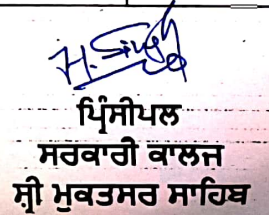 H. Singh
ਪ੍ਰਿੰਸੀਪਲ
ਸਰਕਾਰੀ ਕਾਲਜ
ਸ਼੍ਰੀ ਮੁਕਤਸਰ ਸਾਹਿਬ